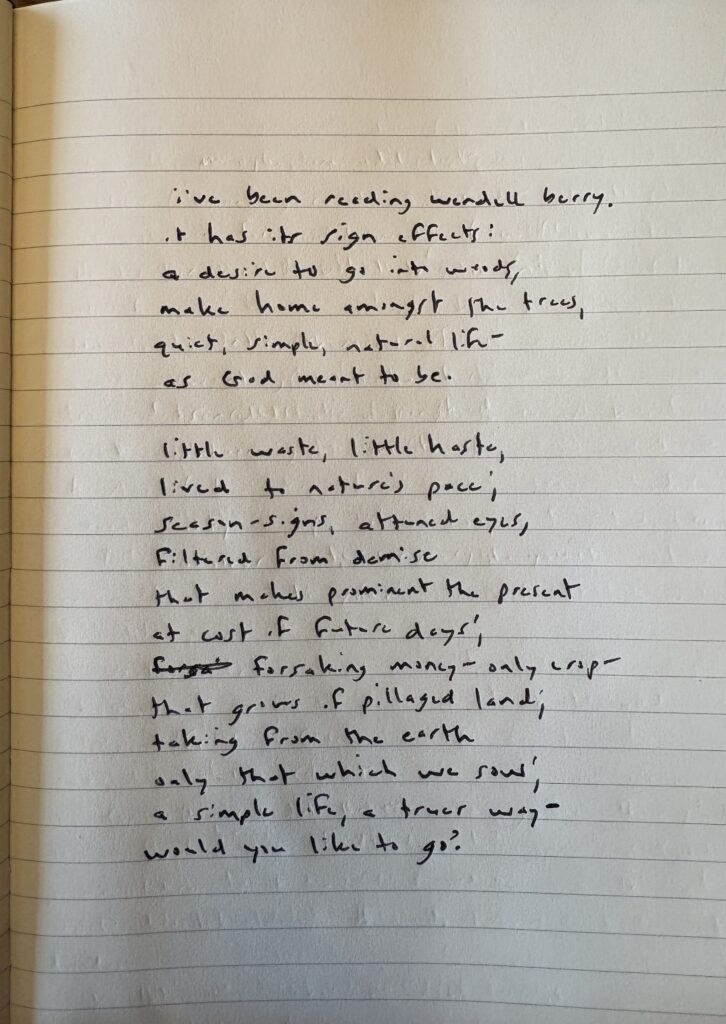 i've been reading wendell berry.
it has its sign effects:
a desire to go into woods,
make home amongst the trees,
quiet, simple, natural life-
as God meant to be.
little waste, little haste,
lived to nature's pace;
season-signs, attuned eyes,
filtered from demise
that makes prominent the present
at cost of future days;
forsaking money-only crop-
that grows of pillaged land;
taking from the earth
only that which we sow;
a simple life, a truer way-
would you like to go?